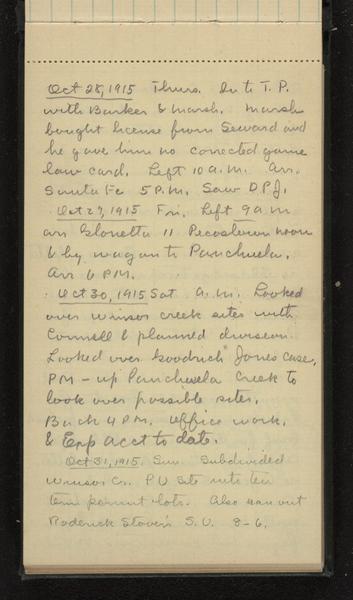 Oct 28, 1915 Thurs. In to T. P.
with Barker & Marsh. Marsh
bought license from Seward and
he gave him no corrected game
law card. Left 10 a.m. Arr.
Santa Fe 5 P.M. Saw D.P.J.
Oct 29, 1915 Fri. Left 9 a.m
arr Glorietta 11 Pecos town noon
& by wagon to Panchuela.
Arr 6 PM.
Oct 30, 1915 Sat a.m. Looked
over Winsor creek sites with
Connell & planned division.
Looked over Goodrich Jones case,
PM - up Panchuela Creek to
look over possible sites.
Back 4 P.M. Office work.
& Exp acct to date.
Oct 31, 1915. Sun. Subdivided
Winsor Cr. P U site into ten
term permit lots. Also ran out
Roderick Stover's S. U. 8-6.